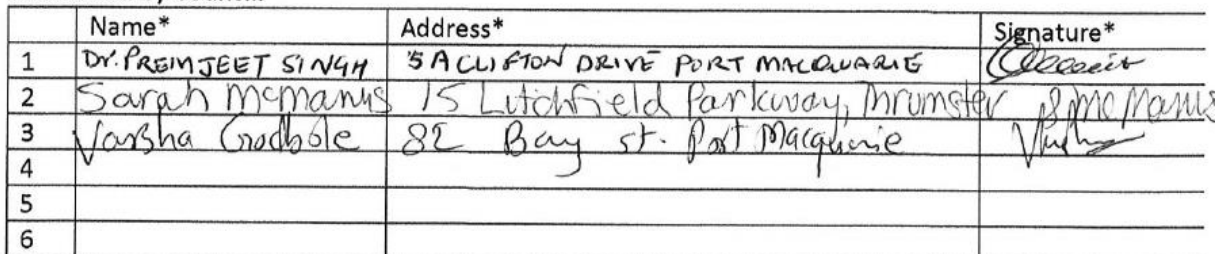 Name* Address* Signature*
1 Dr. PREMJEET SINGH 5A CLIFTON DRIVE PORT MACQUARIE
2 Sarah McManus 15 Litchfield Parkway, Thrumster S McManus
3 Varsha Godbole 82 Bay st. Port Macquarie
4
5
6